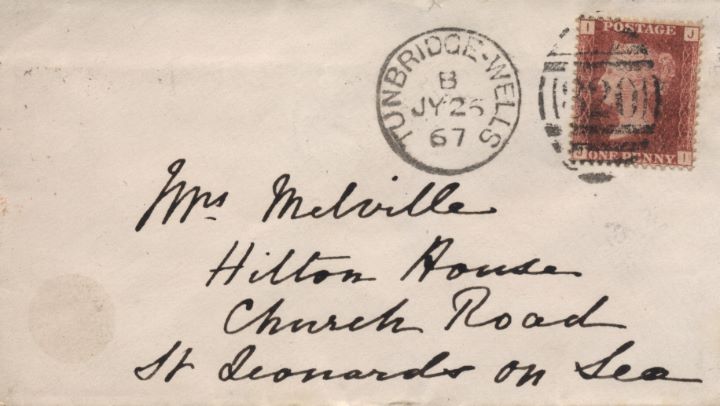 TUNBRIDGE-WELLS
B
JY 25
67
I POSTAGE J
820
J ONE PENNY I
Mrs Melville
Hilton House
Church Road
St Leonards on Sea